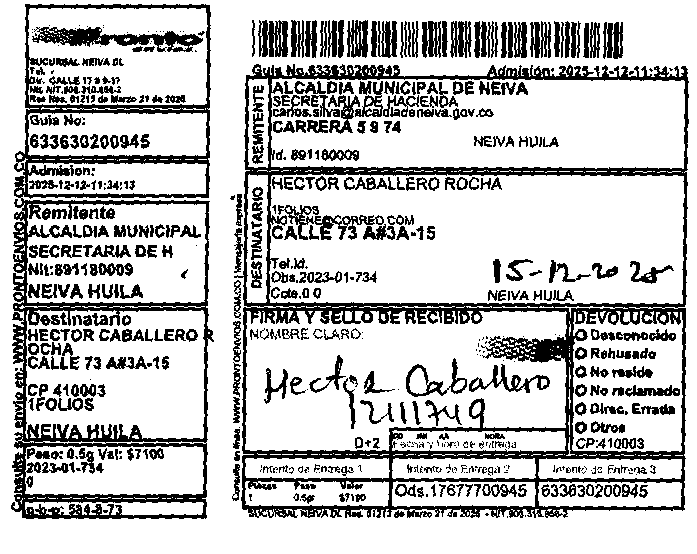 Pronto
envios
SUCURSAL NEIVA DL
Tel.
Dir. CALLE 17 # 9-37
Res Nro. 01213 de Marzo 21 de 2025
Guia No:
633630200945
Admision:
2025-12-12-11:34:13
Remitente
ALCALDIA MUNICIPAL
SECRETARIA DE H
Nit:891180009
NEIVA HUILA
Destinatario
HECTOR CABALLERO R
OCHA
CALLE 73 A#3A-15
CP 410003
1FOLIOS
NEIVA HUILA
Peso: 0.5g Val: $7100
2023-01-734
0
Consulte su envio en: WWW.PRONTOENVIOS.COM.CO
Guia No.633630200945 Admision: 2025-12-12-11:34:13
REMITENTE
ALCALDIA MUNICIPAL DE NEIVA
SECRETARIA DE HACIENDA
carlos.silva@alcaldianeiva.gov.co
CARRERA 5 9 74
NEIVA HUILA
Id. 891180009
DESTINATARIO
HECTOR CABALLERO ROCHA
1FOLIOS
NOTIENE@CORREO.COM
CALLE 73 A#3A-15
Tel.Id.
Obs.2023-01-734
Cote.0 0
15-12-2025
NEIVA HUILA
FIRMA Y SELLO DE RECIBIDO
NOMBRE CLARO:
Hector Caballero
12111749
D+2
DD MM AA HORA
Fecha y hora de entrega
DEVOLUCION
Desconocido
Rehusado
No reside
No reclamado
Direc. Errada
Otros
CP:410003
Intento de Entrega 1 Intento de Entrega 2 Intento de Entrega 3
Piezas Peso Valor
1 0.5gr $7100
Ods.17677700945 633630200945
SUCURSAL NEIVA DL Res. 01213 de Marzo 21 de 2025